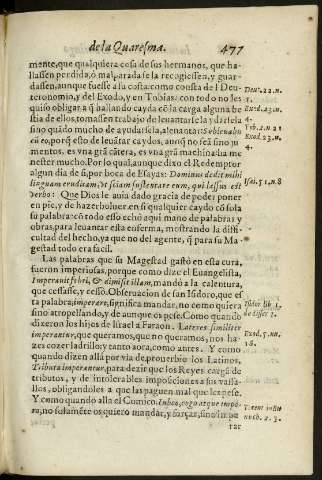 de la Quaresma. 477
mente, que qualquiera cosa de sus hermanos, que ha-
llassen perdida, ò malparada se la recogiessen, y guar-
dassen, aunque fuesse a la costa: como consta del Deu-
teronomio, y del Exodo, y en Tobias: con todo no les
quiso obligar a q̃ hallando cayda cõ la carga alguna be
stia de ellos, tomassen trabajo de leuantarsela y darsela
sino quãdo mucho de ayudarsela, a leuantar: Subleuabis
cũ eo, porq̃ esto de leuãtar caydos, aunq̃ no seã sino ju
mentos, es vna grã cãtera, es vna grã machina: ha me
nester mucho. Por lo qual, aunque dixo el Redemptor
algun dia de si, por boca de Esayas: Dominus dedit mihi
linguam eruditam, vt sciam sustentare eum, qui lassus est
verbo: Que Dios le auia dado gracia de poder poner
en pie, y de hazer boluer en si qualquier caydo cõ sola
su palabra: cõ todo esso echò aqui mano de palabras y
obras, para leuantar esta enferma, mostrando la diffi-
cultad del hecho, ya que no del agente, q̃ para su Ma-
gestad todo era facil.
Las palabras que su Magestad gastò en esta cura,
fueron imperiosas, porque como dize el Euangelista,
Imperauit febri, & dimisit illam, mandò a la calentura,
que cessasse, y cessò. Obseruacion de san Isidoro, que es
ta palabra, imperare, significa mandar, no como quiera
sino atropellando, y de aunque os pese. Como quando
dixeron los hijos de Israel a Faraon. Lateres similiter
imperantur, que queramos, que no queramos, nos ha-
zes cozer ladrillo: y tanto aora, como antes. Y como
quando dizen allà por via de prouerbio los Latinos,
Tributa imperantur, para dezir que los Reyes cargã de
tributos, y de intolerables imposiciones a sus vassa-
llos, obligandoles a que las paguen mal que les pese.
Y como quando alla el Comico. Iubeo, cogo atque impe-
ro, no solamẽte os quiero mandar, y forçar, sino impe
rar
Deut. 22. n.
1.
Exod. 23. n.
4.
Tob. 2. n 21
Exod. 23. n.
4.
Isai. 51. n. 8
Isidor lib 1.
de differ. l.
Exod. 5. nu.
16.
Terent in Eu
nuch. 2. 3.